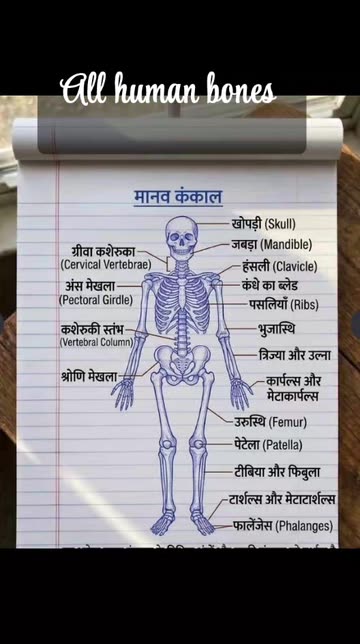 All human bones
मानव कंकाल
खोपड़ी (Skull)
जबड़ा (Mandible)
ग्रीवा कशेरुका
(Cervical Vertebrae)
हंसली (Clavicle)
अंस मेखला
(Pectoral Girdle)
कंधे का ब्लेड
पसलियाँ (Ribs)
कशेरुकी स्तंभ
(Vertebral Column)
भुजास्थि
त्रिज्या और उल्ना
श्रोणि मेखला
कार्पल्स और
मेटाकार्पल्स
उरुस्थि (Femur)
पेटेला (Patella)
टीबिया और फिबुला
टार्शल्स और मेटाटार्शल्स
फालेंजेस (Phalanges)